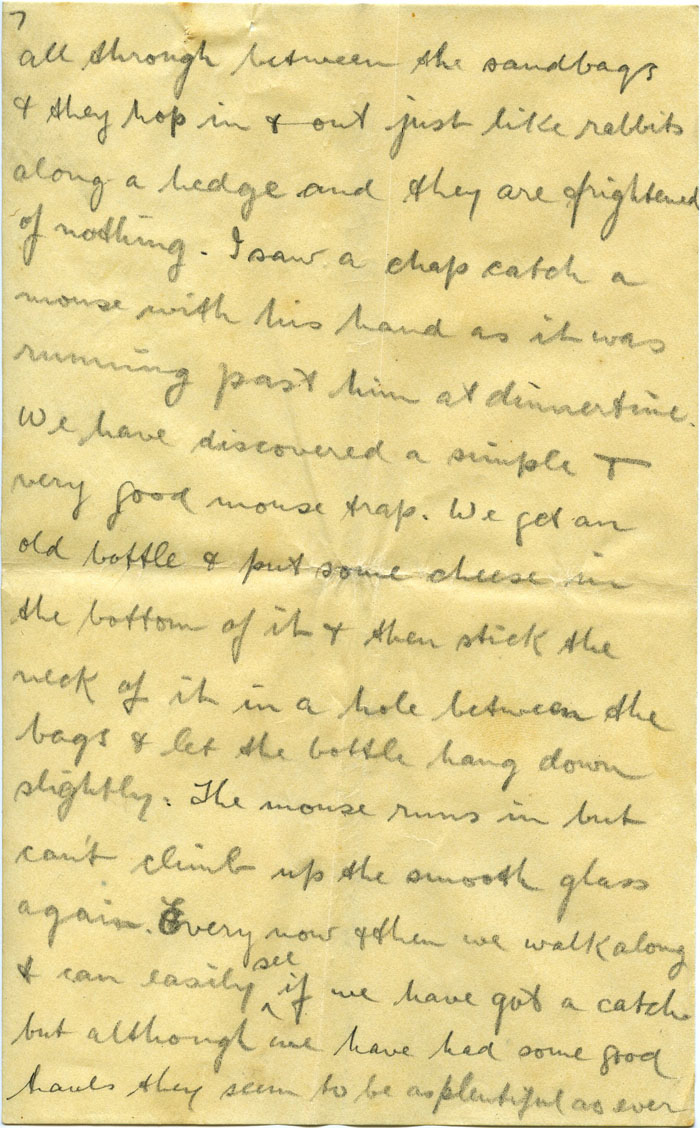 7
all through between the sandbags
& they hop in & out just like rabbits
along a hedge and they are frightened
of nothing. I saw a chap catch a
mouse with his hand as it was
running past him at dinnertime.
We have discovered a simple &
very good mouse trap. We get an
old bottle & put some cheese in
the bottom of it & then stick the
neck of it in a hole between the
bags & let the bottle hang down
slightly. The mouse runs in but
can't climb up the smooth glass
again. Every now & then we walk along
& can easily see if we have got a catch
but although we have had some good
hauls they seem to be as plentiful as ever